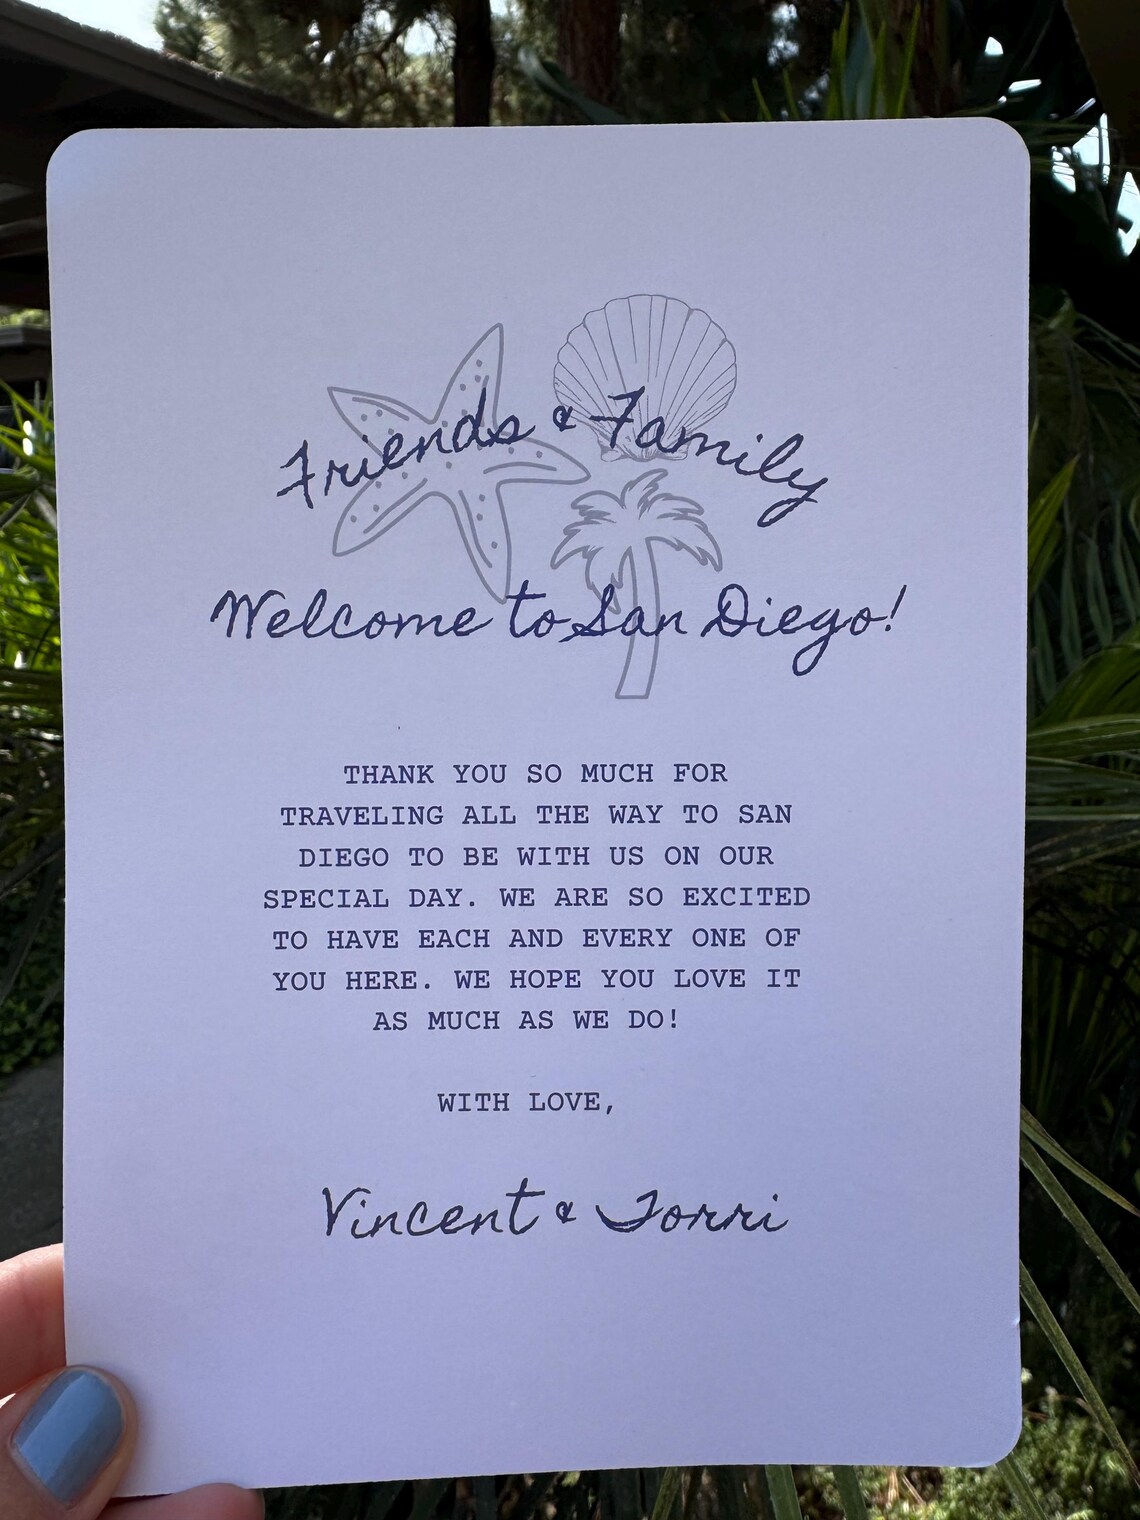 Friends & Family
Welcome to San Diego!
THANK YOU SO MUCH FOR
TRAVELING ALL THE WAY TO SAN
DIEGO TO BE WITH US ON OUR
SPECIAL DAY. WE ARE SO EXCITED
TO HAVE EACH AND EVERY ONE OF
YOU HERE. WE HOPE YOU LOVE IT
AS MUCH AS WE DO!
WITH LOVE,
Vincent & Torri